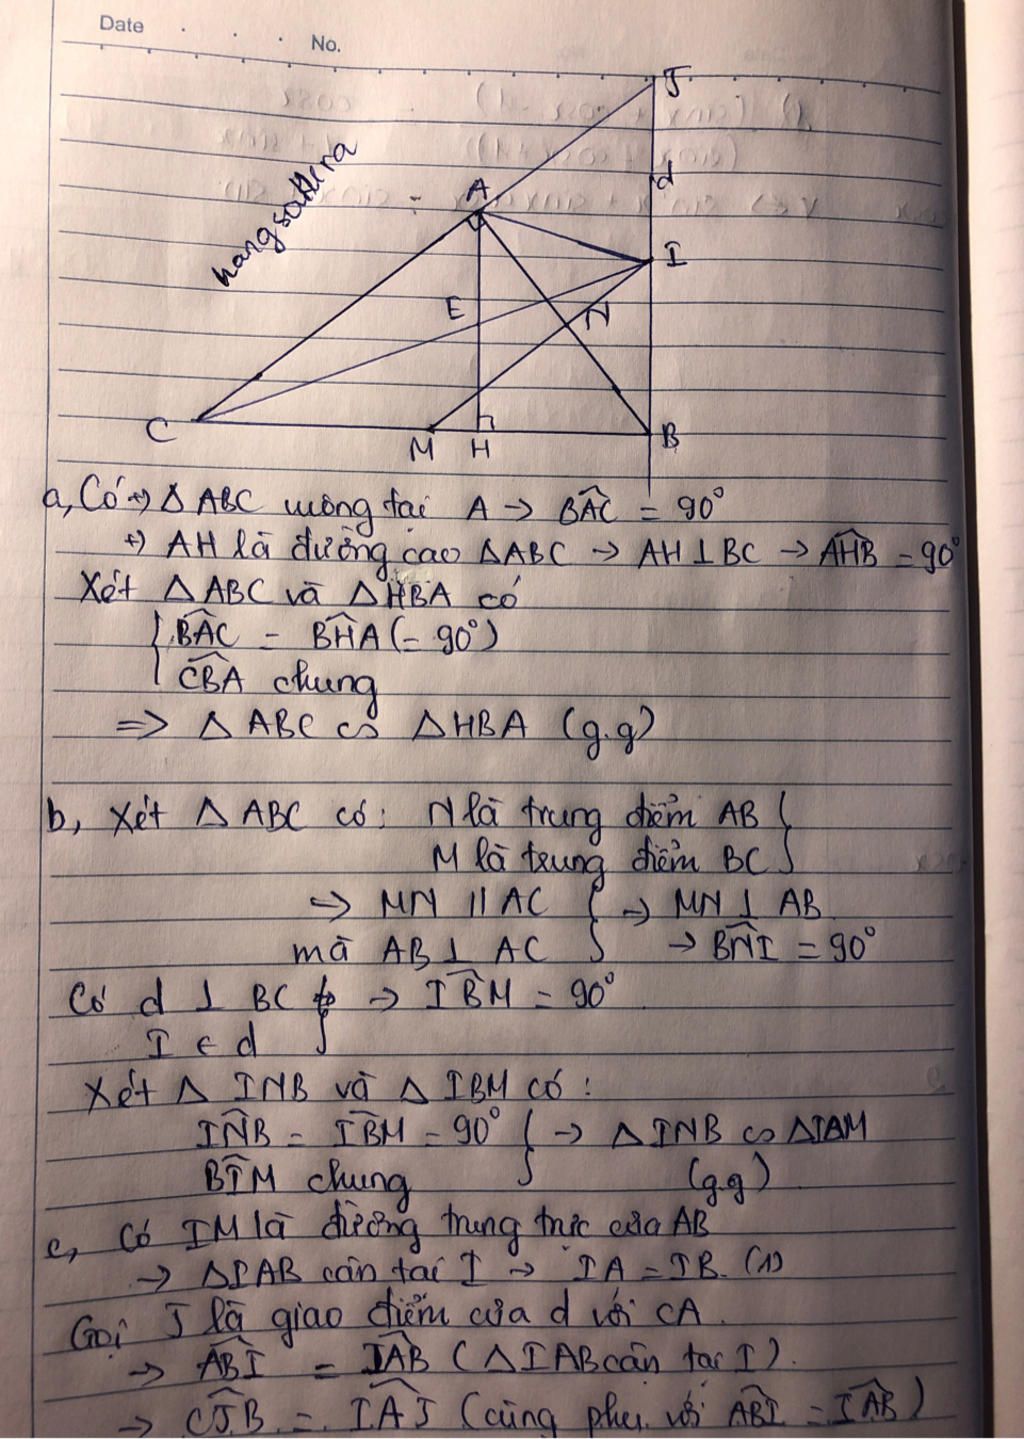 Date
No.
J
d
hangsattera
A
I
E
N
C
M
H
B
a, Có +) Δ ABC vuông tại A → BAC = 90°
+) AH là đường cao ΔABC → AH ⊥ BC → AHB = 90°
Xét Δ ABC và ΔHBA có
{ BAC = BHA (= 90°)
CBA chung
=> Δ ABC ∽ ΔHBA (g.g)
b, Xét Δ ABC có: N là trung điểm AB }
M là trung điểm BC
=> MN // AC } → MN ⊥ AB
mà AB ⊥ AC → BNI = 90°
Có d ⊥ BC } → IBM = 90°
I ∈ d
Xét Δ INB và Δ IBM có:
INB = IBM = 90° } → Δ INB ∽ ΔIAM
BIM chung (g.g)
c, Có IM là đường trung trực của AB
→ ΔIAB cân tại I → IA = IB (1)
Gọi J là giao điểm của d với CA.
→ ABI = IAB (ΔIAB cân tại I).
→ CJB = IAJ (cùng phụ với ABI = IAB)